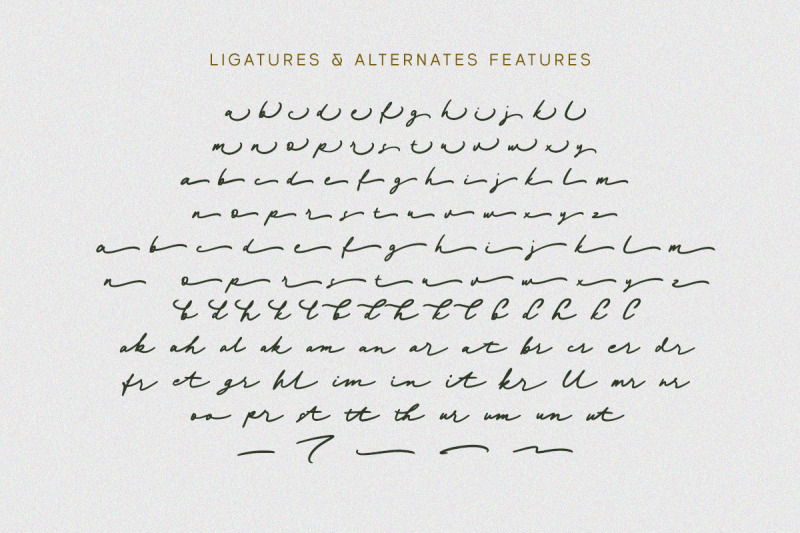 LIGATURES & ALTERNATES FEATURES
a b c d e f g h i j k l
m n o p r s t u v w x y
a b c d e f g h i j k l m
n o p r s t u v w x y z
a b c d e f g h i j k l m
n o p r s t u v w x y z
b d h k l b d h k l b d h k l
ab ah al ak am an ar at br cr er dr
fr et gr ht im in it kr ll mr nr
oo pr st tt th ur um un ut